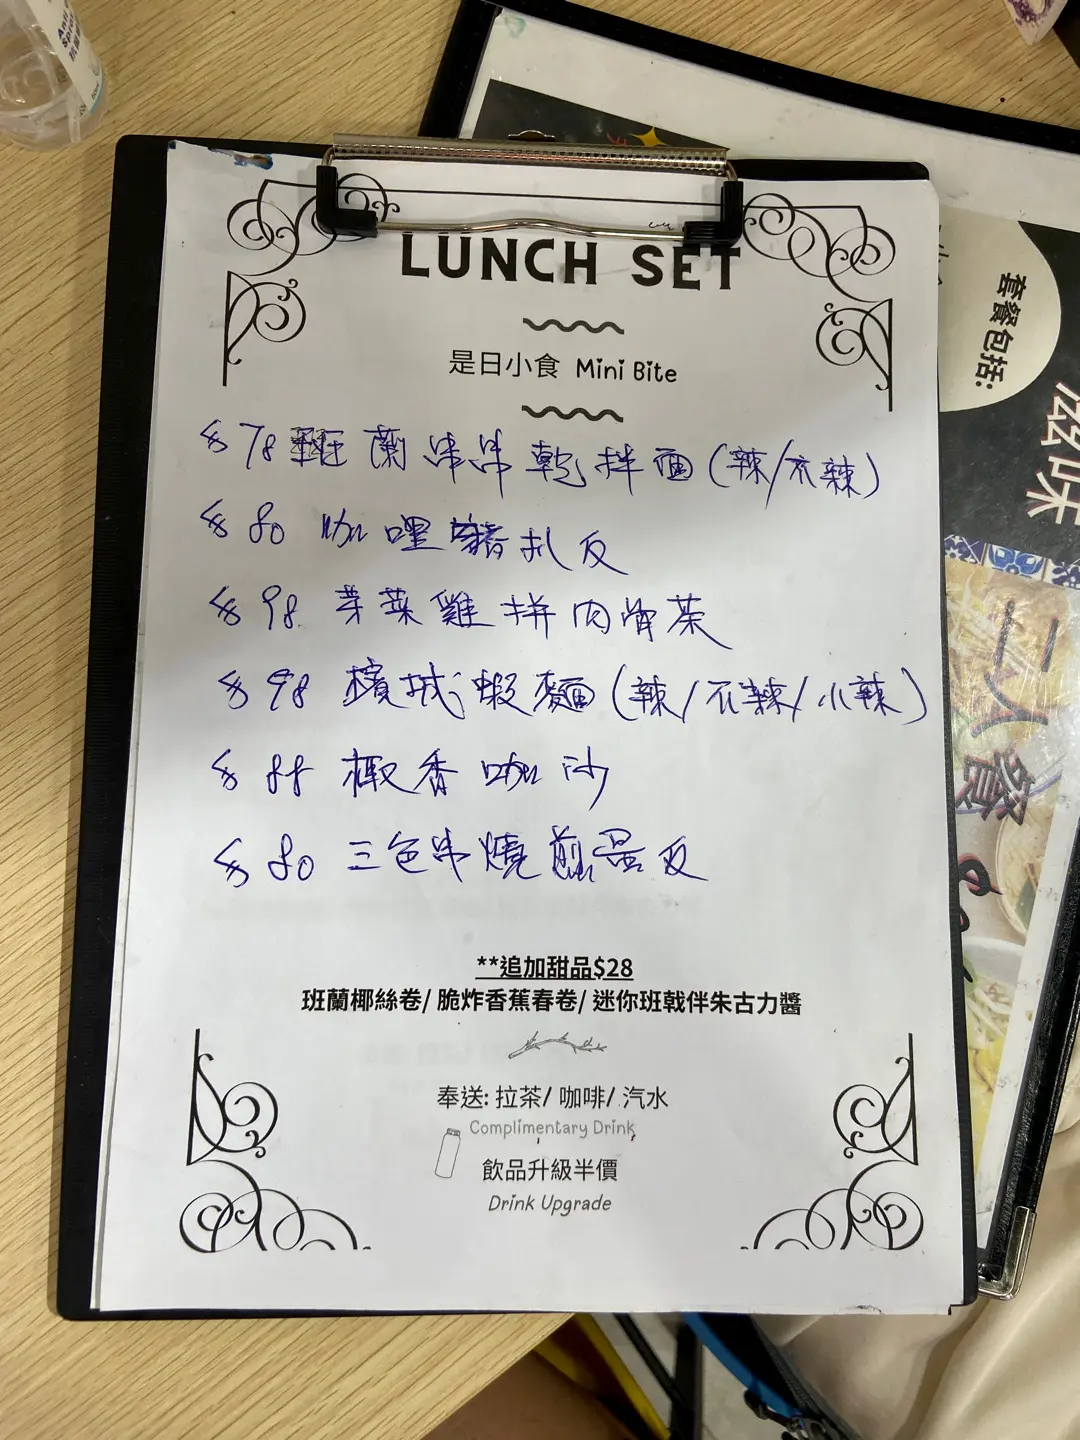 LUNCH SET
是日小食 Mini Bite
$78 班蘭串串乾拌面(辣/不辣)
$80 咖哩豬扒反
$98 芽菜雞拼肉骨茶
$98 檳城蝦麵(辣/不辣/小辣)
$88 椒香咖沙
$80 三色串燒煎蛋反
**追加甜品$28
班蘭椰絲卷/ 脆炸香蕉春卷/ 迷你班戟伴朱古力醬
奉送: 拉茶/ 咖啡/ 汽水
Complimentary Drink
飲品升級半價
Drink Upgrade
套餐包括:
滋味
二人餐